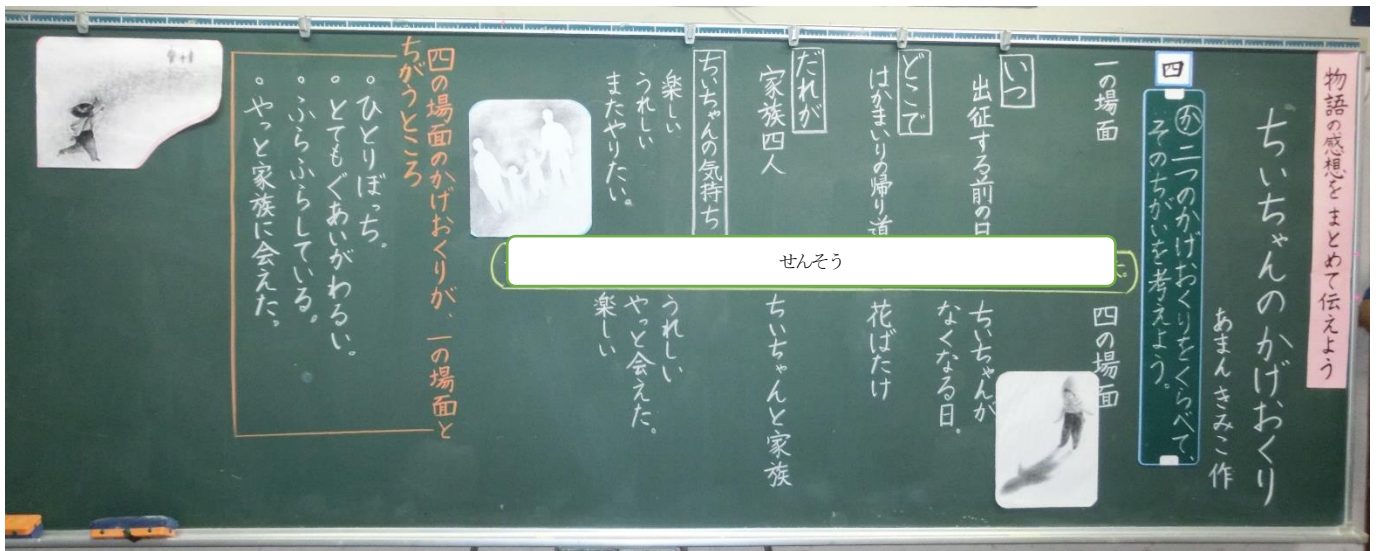 物語の感想を まとめて伝えよう
ちいちゃんのかげおくり
あまん きみこ 作
四
か 二つのかげおくりをくらべて、
そのちがいを考えよう。
一の場面
四の場面
いつ
出征する前の日
ちいちゃんが
なくなる日。
どこで
はかまいりの帰り道
花ばたけ
だれが
家族四人
ちいちゃんと家族
ちいちゃんの気持ち
楽しい
うれしい
またやりたい。
うれしい
やっと会えた。
楽しい
せんそう
四の場面のかげおくりが、一の場面と
ちがうところ
。ひとりぼっち。
。とてもぐあいがわるい。
。ふらふらしている。
。やっと家族に会えた。